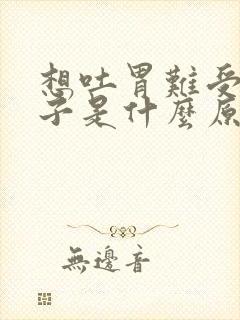 想吐胃難受
子是什麼原
無邊音